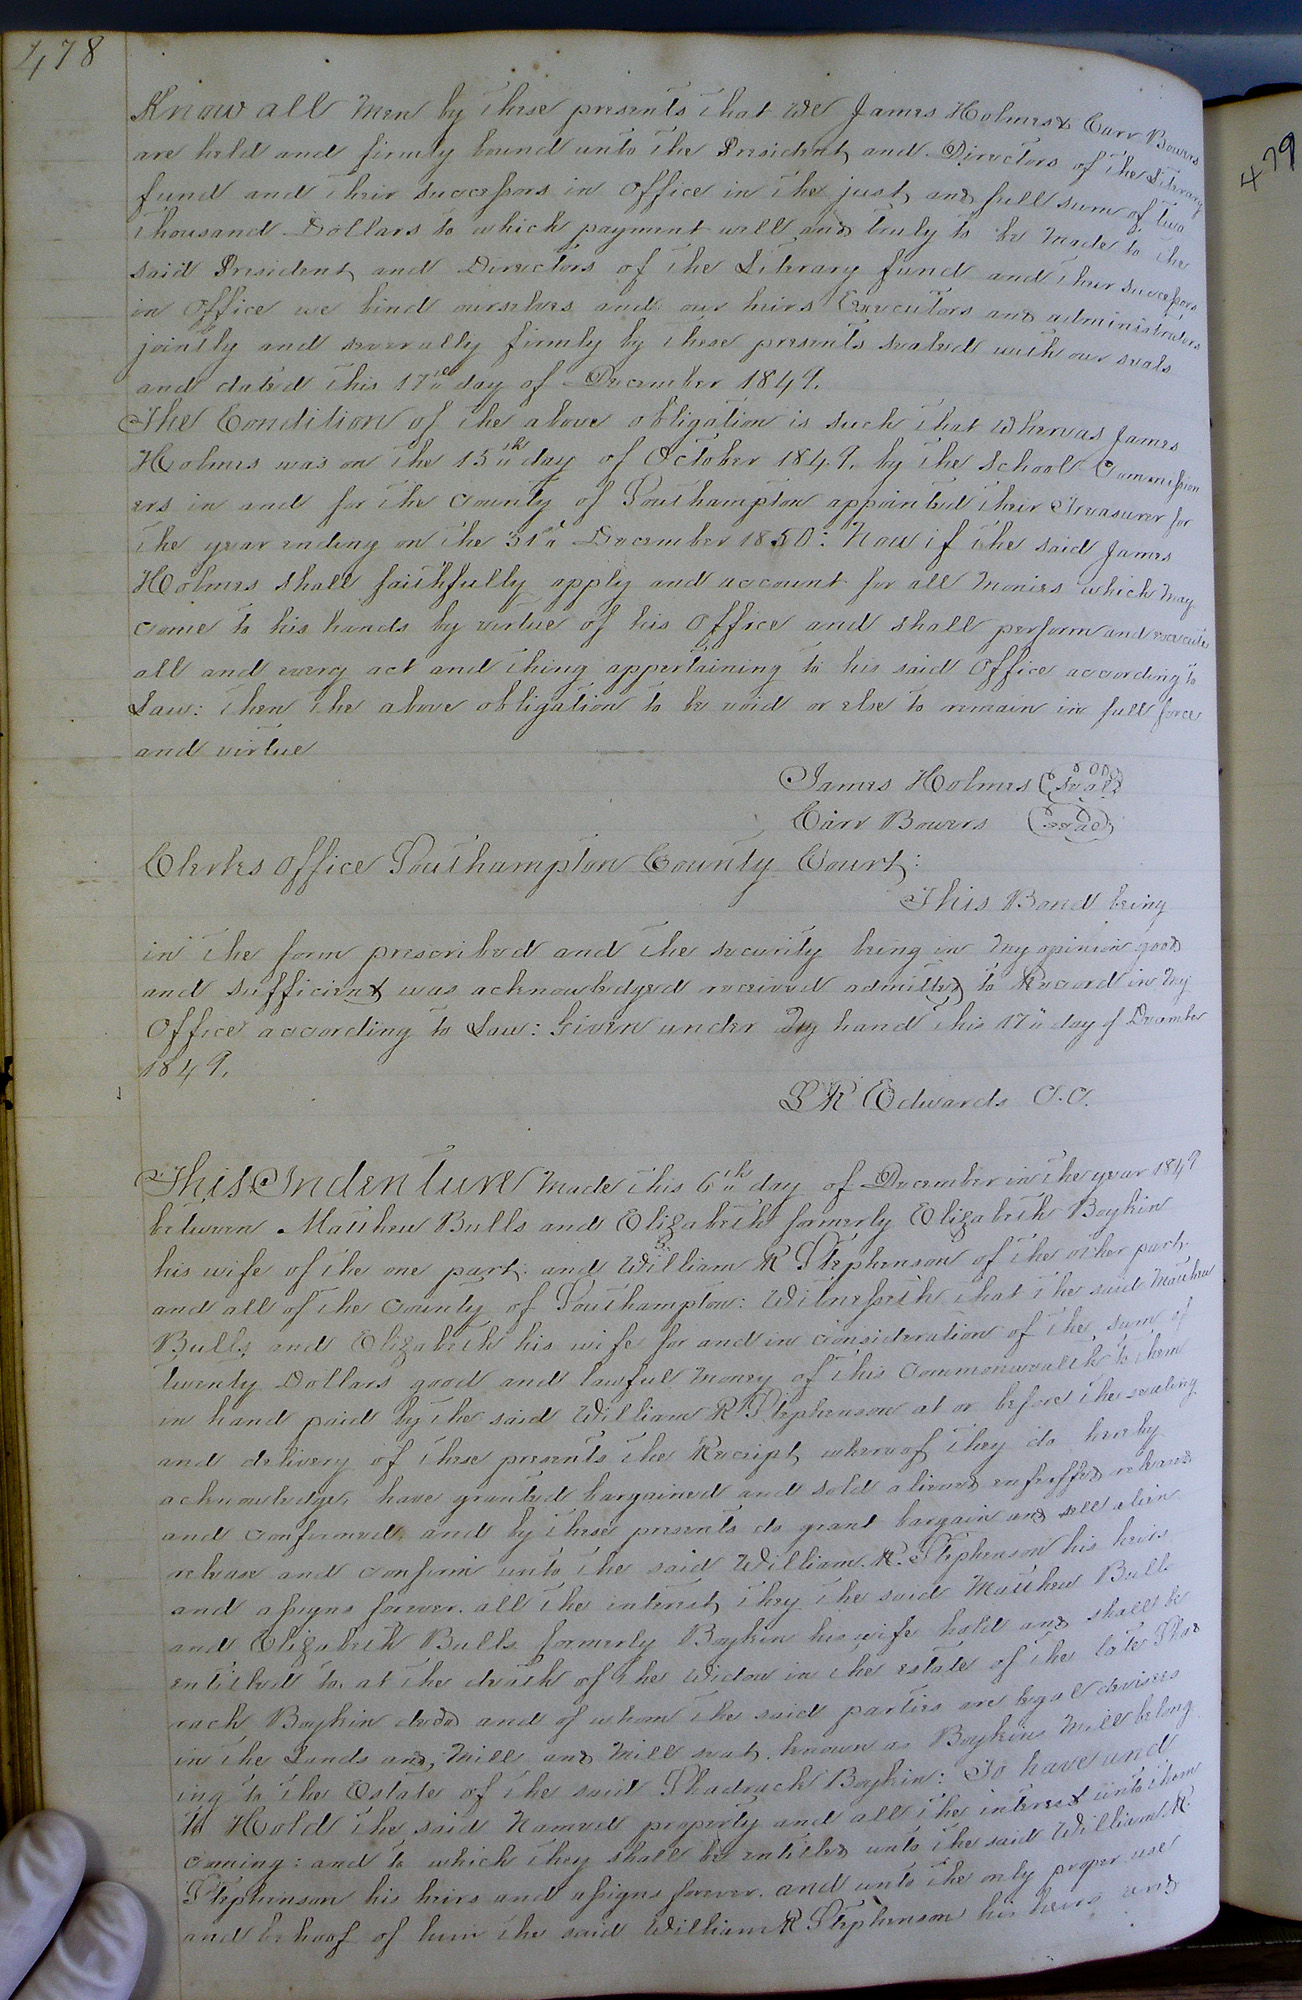 478
479
Know all Men by these presents that We James Holmes & Carr Bowers
are held and firmly bound unto the President, and Directors of the Literary
fund and their successors in office in the just, and full sum of two
thousand Dollars to which payment well and truly to be Made to the
said President, and Directors of the Literary fund and their successors
in Office we bind ourselves and our heirs Executors and administrators
jointly and severally firmly by these presents sealed with our seals
and dated this 17th day of December 1849.
The Condition of the above obligation is such that Whereas James
Holmes was on the 15th day of October 1849. by the School Commission
ers in and for the County of Southampton appointed their Treasurer for
the year ending on the 31st December 1850: Now if the said James
Holmes shall faithfully apply and account for all Monies which May
come to his hands by virtue of his office and shall perform and execute
all and every act and thing appertaining to his said Office according to
Law: then the above obligation to be void or else to remain in full force
and virtue
James Holmes (seal)
Carr Bowers (seal)
Clerks office Southampton County Court:
This Bond being
in the form prescribed and the security being in My opinion good
and sufficient was acknowledged received admitted to Record in My
Office according to Law: Given under My hand this 17th day of December
1849.
L R Edwards C.C.
This Indenture Made this 6th day of December in the year 1849
between Matthew Bulls and Elizabeth formerly Elizabeth Boykin
his wife of the one part. and William R Stephenson of the other part.
and all of the County of Southampton: Witnesseth that the said Matthew
Bulls and Elizabeth his wife for and in consideration of the sum of
twenty Dollars good and lawful Money of this Commonwealth to them
in hand paid by the said William R Stephenson at or before the sealing
and delivery of these presents the Receipt, whereof they do hereby
acknowledge, have granted bargained and sold aliened enfeoffed released
and confirmed. and by these presents do grant bargain and sell alien
release and confirm unto the said William. R. Stephenson his heirs
and assigns forever. all the interest, they the said Matthew Bulls
and Elizabeth Bulls formerly Boykin his wife hold and shall be
entitled to. at the death of the Widow in the estate of the late Shad
rach Boykin decd. and of whom the said parties are legal devisees
in the Lands and, Mill, and Mill seat, known as Boykins Mill belong
ing to the Estate of the said Shadrach Boykin: To have and
to Hold the said Named property and all the interest unto them
coming: and to which they shall be entitled unto the said William R.
Stephenson his heirs and assigns forever. and unto the only proper use
and behoof of him the said William R Stephenson his heirs and